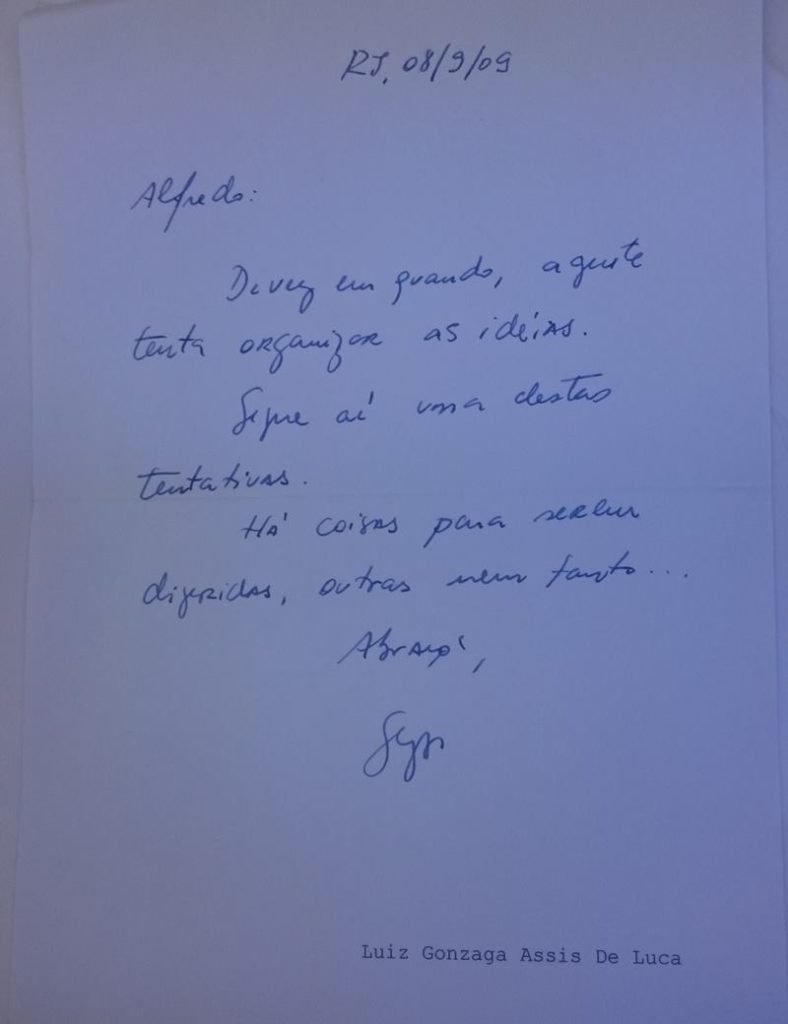 RJ, 08/9/09
Alfredo:
De vez em quando, a gente
tenta organizar as idéias.
Segue aí uma destas
tentativas.
Há coisas para serem
digeridas, outras nem tanto...
Abraço,
Luiz Gonzaga Assis De Luca